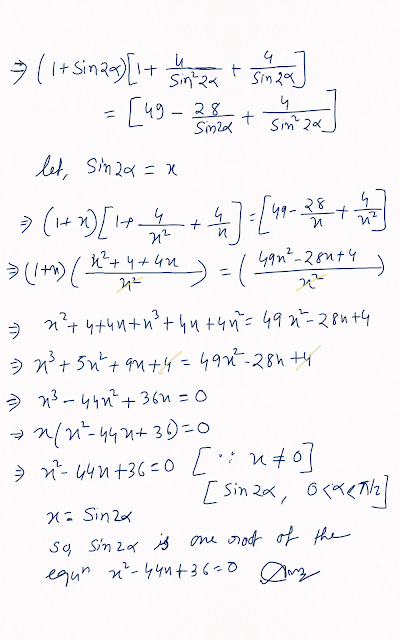 ⇒ (1+Sin2α)[1 + 4/Sin²2α + 4/Sin2α]
= [49 − 28/Sin2α + 4/Sin²2α]
let, Sin2α = x
⇒ (1+x)[1+ 4/x² + 4/x] = [49 − 28/x + 4/x²]
⇒ (1+x)(x²+4+4x / x²) = (49x²−28x+4 / x²)
⇒ x²+4+4x+x³+4x+4x² = 49x²−28x+4
⇒ x³+5x²+9x+4 = 49x²−28x+4
⇒ x³−44x²+36x = 0
→ x(x²−44x+36) = 0
⇒ x²−44x+36 = 0 [∵ x ≠ 0]
[Sin2α, 0<α<π/2]
x = Sin2α
so, Sin2α is one root of the
equⁿ x²−44x+36=0 Ans